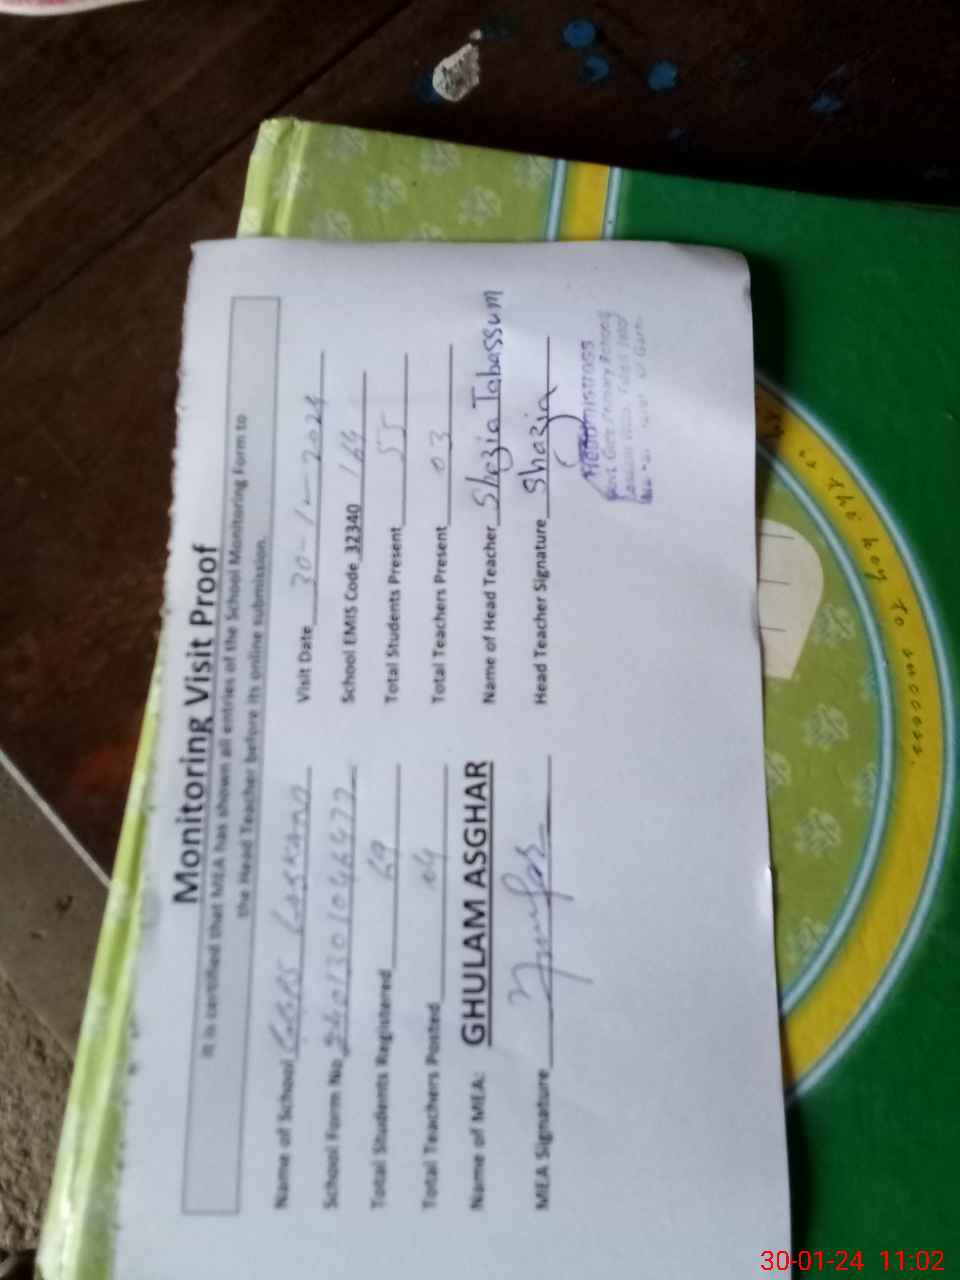 Monitoring Visit Proof
It is certified that MEA has shown all entries of the School Monitoring Form to
the Head Teacher before its online submission.
Name of School GGPS Visit Date 30-1-2024
School Form No School EMIS Code 32340 164
Total Students Registered 69 Total Students Present 55
Total Teachers Posted 04 Total Teachers Present 03
Name of MEA: GHULAM ASGHAR Name of Head Teacher Shazia Tabassum
MEA Signature Head Teacher Signature Shazia
Headmistress
Govt. Girls Primary School
30-01-24 11:02